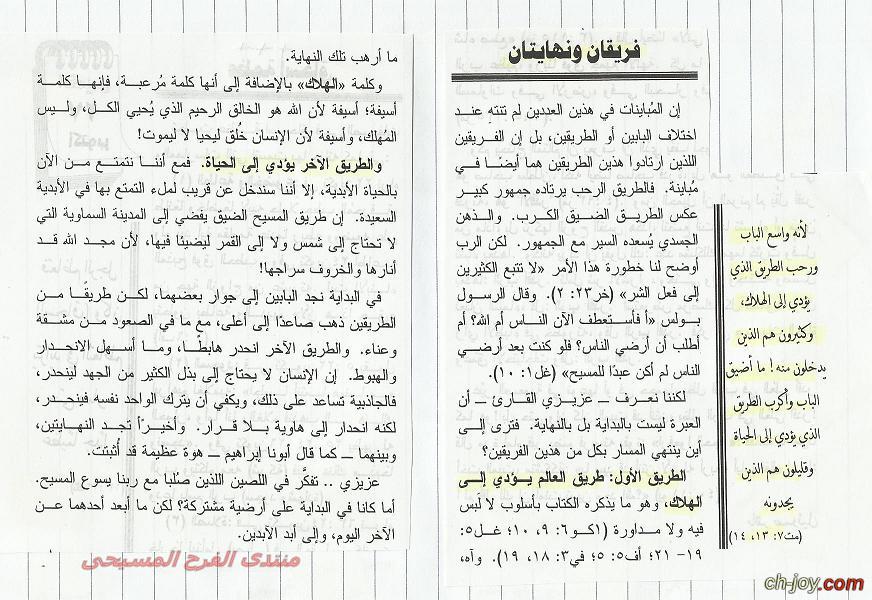 فريقان ونهايتان
إن المُباينات في هذين العددين لم تنتهِ عند
اختلاف البابين أو الطريقين، بل إن الفريقين
اللذين ارتادوا هذين الطريقين هما أيضًا في
مُباينة. فالطريق الرحب يرتاده جمهور كبير
عكس الطريق الضيق الكرب. والذهن
الجسدي يُسعده السير مع الجمهور. لكن الرب
أوضح لنا خطورة هذا الأمر «لا تتبع الكثيرين
إلى فعل الشر» (خر٢٣: ٢). وقال الرسول
بولس «أ فأستعطف الآن الناس أم الله؟ أم
أطلب أن أرضي الناس؟ فلو كنت بعد أرضي
الناس لم أكن عبدًا للمسيح» (غل١: ١٠).
لكننا نعرف ــ عزيزي القارئ ــ أن
العبرة ليست بالبداية بل بالنهاية. فترى إلى
أين ينتهي المسار بكل من هذين الفريقين؟
الطريق الأول: طريق العالم يؤدي إلى
الهلاك، وهو ما يذكره الكتاب بأسلوب لا لَبس
فيه ولا مداورة (١كو٦: ٩، ١٠؛ غل٥:
١٩– ٢١؛ أف٥: ٥؛ في٣: ١٨، ١٩). وآه،
لأنه واسع الباب
ورحب الطريق الذي
يؤدي إلى الهلاك،
وكثيرون هم الذين
يدخلون منه! ما أضيق
الباب وأكرب الطريق
الذي يؤدي إلى الحياة
وقليلون هم الذين
يجدونه
(مت٧: ١٣، ١٤)
ما أرهب تلك النهاية.
وكلمة «الهلاك» بالإضافة إلى أنها كلمة مُرعبة، فإنها كلمة
أسيفة؛ أسيفة لأن الله هو الخالق الرحيم الذي يُحيي الكل، وليس
المُهلك، وأسيفة لأن الإنسان خُلق ليحيا لا ليموت!
والطريق الآخر يؤدي إلى الحياة. فمع أننا نتمتع من الآن
بالحياة الأبدية، إلا أننا سندخل عن قريب لملء التمتع بها في الأبدية
السعيدة. إن طريق المسيح الضيق يفضي إلى المدينة السماوية التي
لا تحتاج إلى شمس ولا إلى القمر ليضيئا فيها، لأن مجد الله قد
أنارها والخروف سراجها!
في البداية نجد البابين إلى جوار بعضهما، لكن طريقًا من
الطريقين ذهب صاعدًا إلى أعلى، مع ما في الصعود من مشقة
وعناء. والطريق الآخر انحدر هابطًا، وما أسهل الانحدار
والهبوط. إن الإنسان لا يحتاج إلى بذل الكثير من الجهد لينحدر،
فالجاذبية تساعد على ذلك، ويكفي أن يترك الواحد نفسه فينحدر،
لكنه انحدار إلى هاوية بلا قرار. وأخيراً تجد النهايتين،
وبينهما ــ كما قال أبونا إبراهيم ــ هوة عظيمة قد أُثبتت.
عزيزي .. تفكّر في اللصين اللذين صُلبا مع ربنا يسوع المسيح.
أما كانا في البداية على أرضية مشتركة؟ لكن ما أبعد أحدهما عن
الآخر اليوم، وإلى أبد الآبدين.
منتدى الفرح المسيحى
ch-joy.com